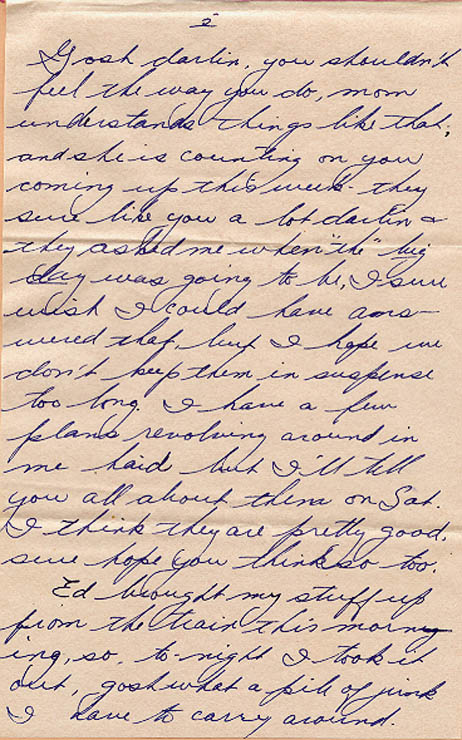 2
Gosh darlin, you shouldn't
feel the way you do, mom
understands things like that,
and she is counting on you
coming up this week - they
sure like you a lot darlin &
they asked me when "the" big
day was going to be, I sure
wish I could have ans-
wered that, but I hope we
don't keep them in suspense
too long. I have a few
plans revolving around in
me haid but I'll tell
you all about them on Sat.
I think they are pretty good,
sure hope you think so too.
Ed brought my stuff up
from the train this morn-
ing, so, to-night I took it
out, gosh what a pile of junk
I have to carry around.